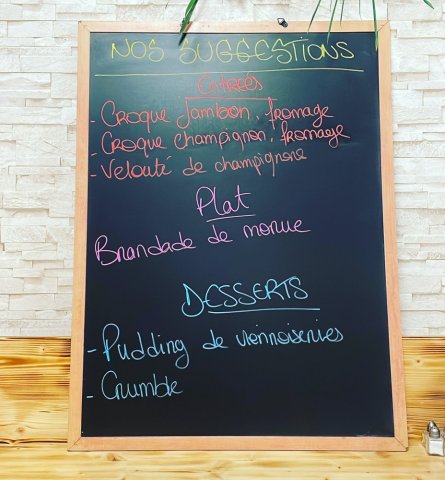 NOS SUGGESTIONS
Entrées
- CROQUE Jambon, fromage
- CROQUE champignon, fromage
- Velouté de champignons
Plat
Brandade de morue
DESSERTS
- Pudding de viennoiseries
- Crumble